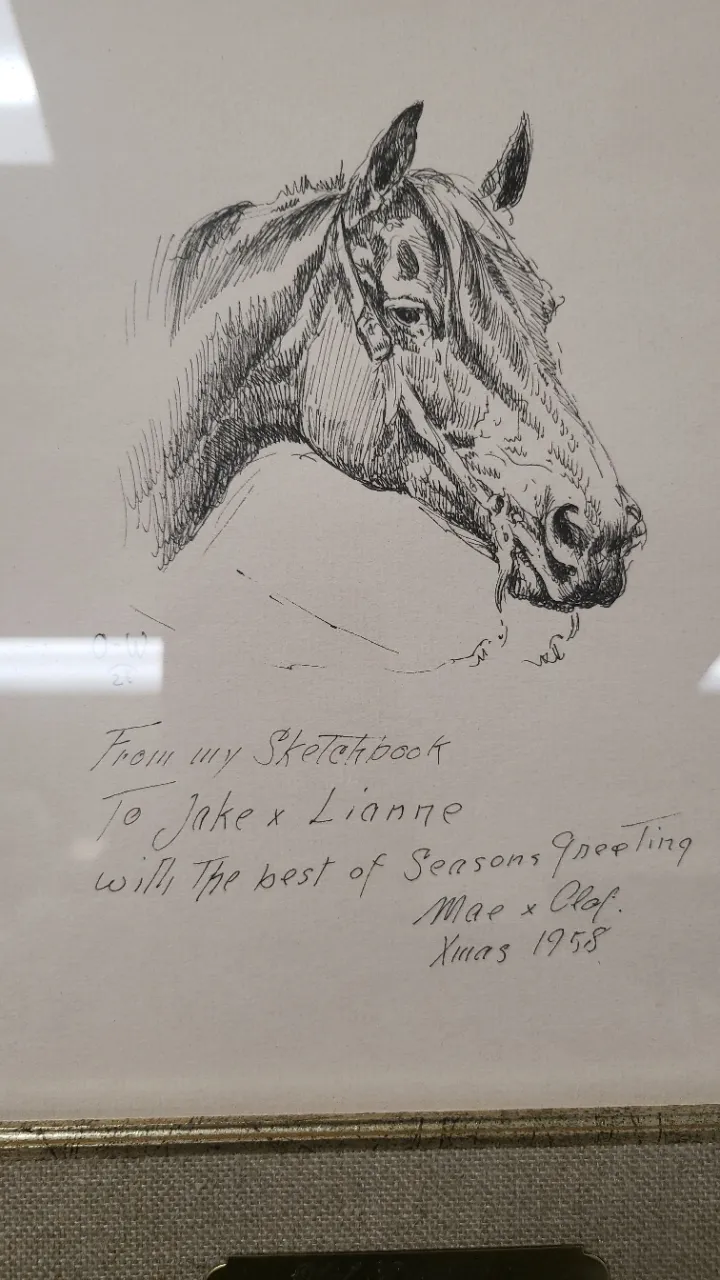 O-W
From my Sketchbook
To Jake x Lianne
with The best of Seasons greeting
Mae x Olaf.
Xmas 1958